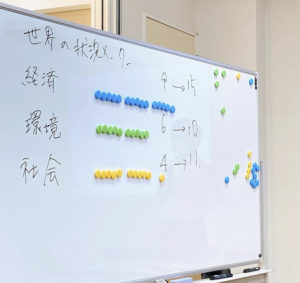 世界の状況メーター
経済 9→15
環境 6→10
社会 4→11